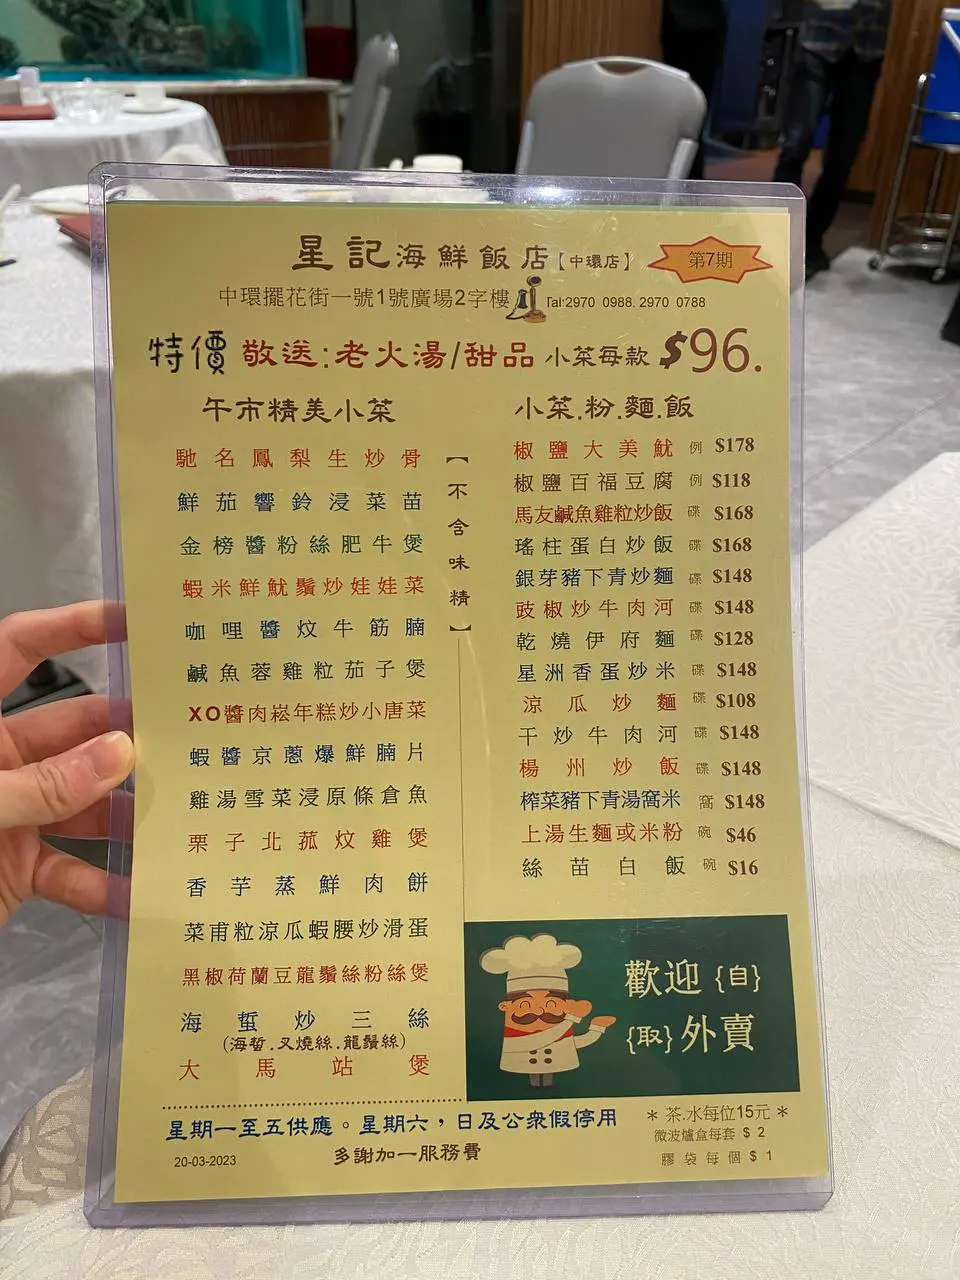 星記海鮮飯店【中環店】
第7期
中環擺花街一號1號廣場2字樓 Tal:2970 0988. 2970 0788
特價 敬送:老火湯/甜品 小菜每款 $96.
午市精美小菜
馳名鳳梨生炒骨
鮮茄響鈴浸菜苗
金榜醬粉絲肥牛煲
蝦米鮮魷鬚炒娃娃菜
咖哩醬炆牛筋腩
鹹魚蓉雞粒茄子煲
XO醬肉崧年糕炒小唐菜
蝦醬京蔥爆鮮腩片
雞湯雪菜浸原條倉魚
栗子北菰炆雞煲
香芋蒸鮮肉餅
菜甫粒涼瓜蝦腰炒滑蛋
黑椒荷蘭豆龍鬚絲粉絲煲
海蜇炒三絲
(海蜇.叉燒絲.龍鬚絲)
大馬站煲
【不含味精】
小菜.粉.麵.飯
椒鹽大美魷 例 $178
椒鹽百福豆腐 例 $118
馬友鹹魚雞粒炒飯 碟 $168
瑤柱蛋白炒飯 碟 $168
銀芽豬下青炒麵 碟 $148
豉椒炒牛肉河 碟 $148
乾燒伊府麵 碟 $128
星洲香蛋炒米 碟 $148
涼瓜炒麵 碟 $108
干炒牛肉河 碟 $148
楊州炒飯 碟 $148
榨菜豬下青湯窩米 窩 $148
上湯生麵或米粉 碗 $46
絲苗白飯 碗 $16
歡迎{自}
{取}外賣
星期一至五供應。星期六，日及公衆假停用
多謝加一服務費
20-03-2023
＊茶.水每位15元＊
微波爐盒每套 $ 2
膠袋每個 $ 1